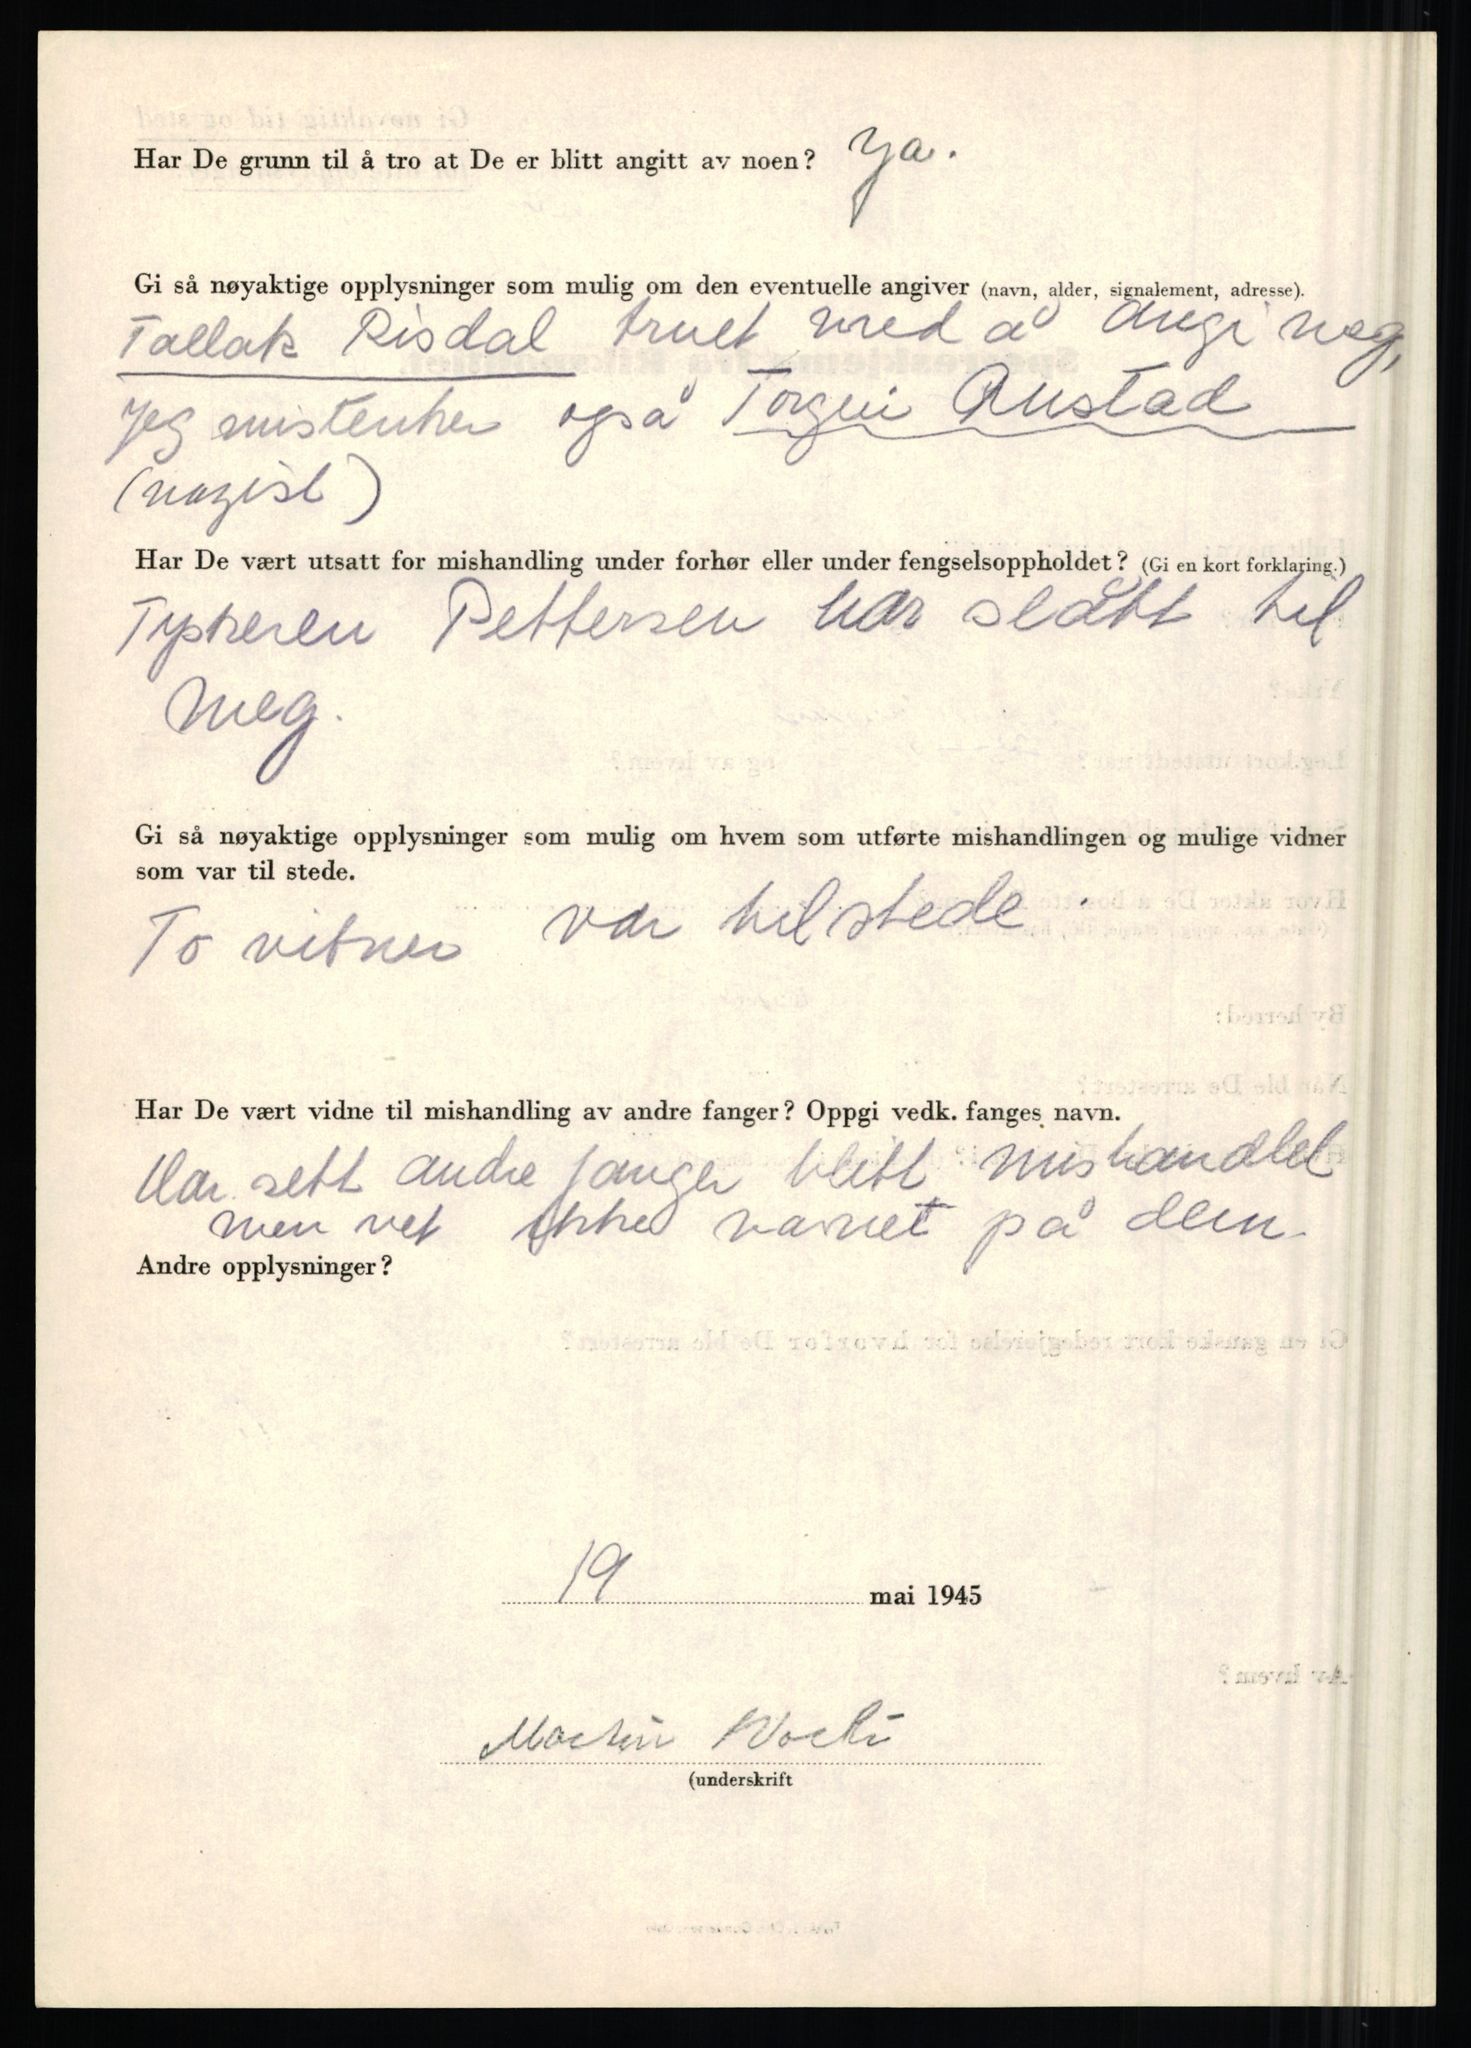 Har De grunn til å tro at De er blitt angitt av noen? Ja.
Gi så nøyaktige opplysninger som mulig om den eventuelle angiver (navn, alder, signalement, adresse).
Tallak Risdal truet med å angi meg,
Jeg mistenker også Torgeir Rustad
(nazist)
Har De vært utsatt for mishandling under forhør eller under fengselsoppholdet? (Gi en kort forklaring.)
Tyskeren Pettersen har slått til
meg.
Gi så nøyaktige opplysninger som mulig om hvem som utførte mishandlingen og mulige vidner
som var til stede.
To vitner var tilstede
Har De vært vidne til mishandling av andre fanger? Oppgi vedk. fanges navn.
Har sett andre fanger blitt mishandlet
men vet ikke navnet på dem.
Andre opplysninger?
19 mai 1945
Martin
(underskrift